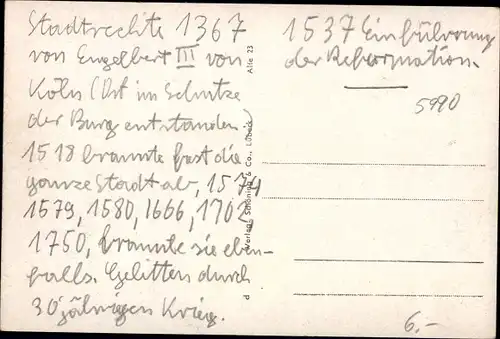 Stadtrechte 1367
von Engelbert III von
Köln (Ort im Schutze
der Burg entstanden)
1518 brannte fast die
ganze Stadt ab, 1574
1579, 1580, 1666, 1702
1750, brannte sie eben-
falls. Gelitten durch
30 jährigen Krieg.
d Verlag: Schöning & Co., Lübeck
Alte 23
1537 Einführung
der Reformation.
5990
6.-